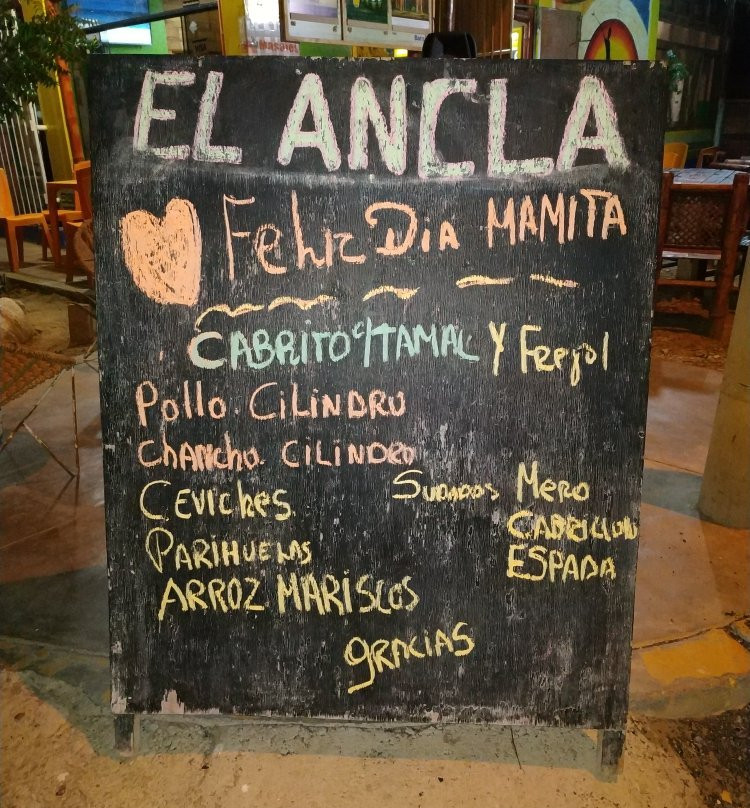 EL ANCLA
Feliz Dia MAMITA
CABRITO c/TAMAL Y Frejol
Pollo. CILINDRO
Chancho. CILINDRO
Ceviches
Sudados Mero
CABRILLON
ESPADA
PARIHUELAS
ARROZ MARISCOS
gracias